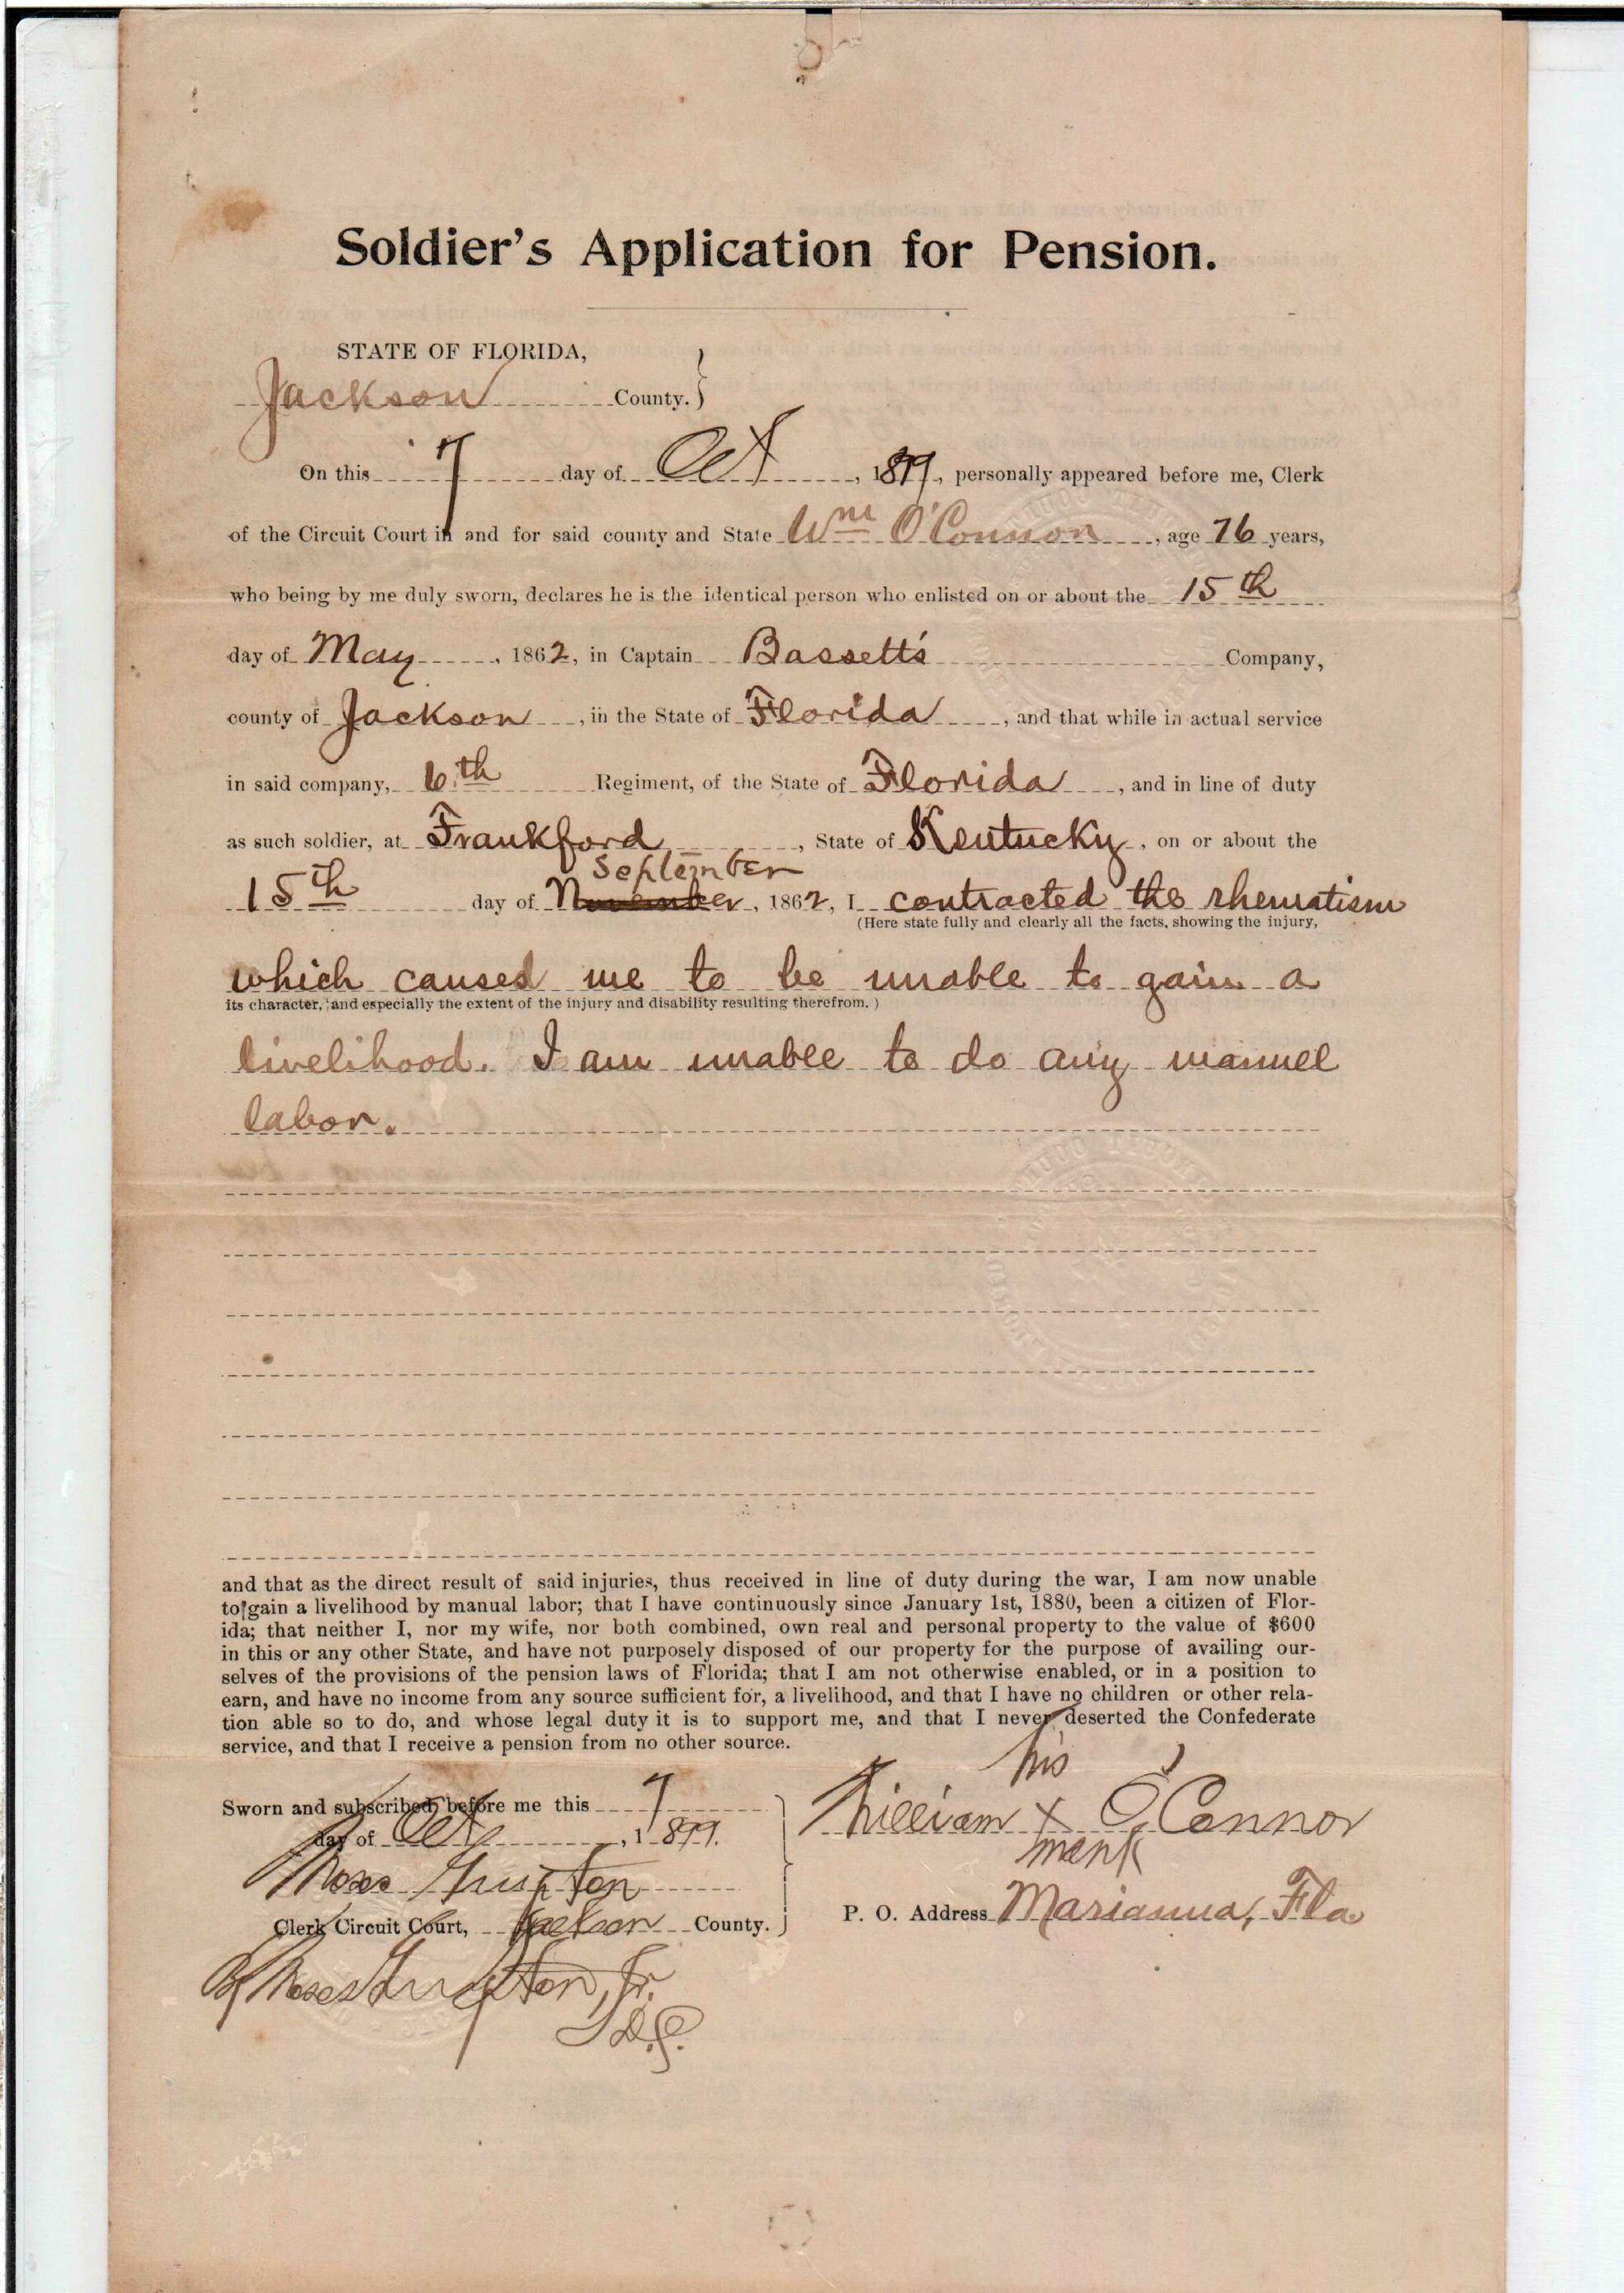 Soldier's Application for Pension.
STATE OF FLORIDA,
Jackson County. }
On this 7 day of Oct, 1899, personally appeared before me, Clerk
of the Circuit Court in and for said county and State Wm O'Connor, age 76 years,
who being by me duly sworn, declares he is the identical person who enlisted on or about the 15th
day of May, 1862, in Captain Bassett's Company,
county of Jackson, in the State of Florida, and that while in actual service
in said company, 6th Regiment, of the State of Florida, and in line of duty
as such soldier, at Frankford, State of Kentucky, on or about the
September
15th day of November, 1862, I contracted the rhematism
(Here state fully and clearly all the facts, showing the injury,
which caused me to be unable to gain a
its character, and especially the extent of the injury and disability resulting therefrom.)
livelihood. I am unable to do any manuel
labor.
and that as the direct result of said injuries, thus received in line of duty during the war, I am now unable
to gain a livelihood by manual labor; that I have continuously since January 1st, 1880, been a citizen of Flor-
ida; that neither I, nor my wife, nor both combined, own real and personal property to the value of $600
in this or any other State, and have not purposely disposed of our property for the purpose of availing our-
selves of the provisions of the pension laws of Florida; that I am not otherwise enabled, or in a position to
earn, and have no income from any source sufficient for, a livelihood, and that I have no children or other rela-
tion able so to do, and whose legal duty it is to support me, and that I never deserted the Confederate
service, and that I receive a pension from no other source.
his
Sworn and subscribed before me this 7
William x O'Connor
day of Oct, 1899.
mark
Moses Guyton
P. O. Address Marianna, Fla
Clerk Circuit Court, Jackson County.
By Moses Guyton, Jr.
D.C.